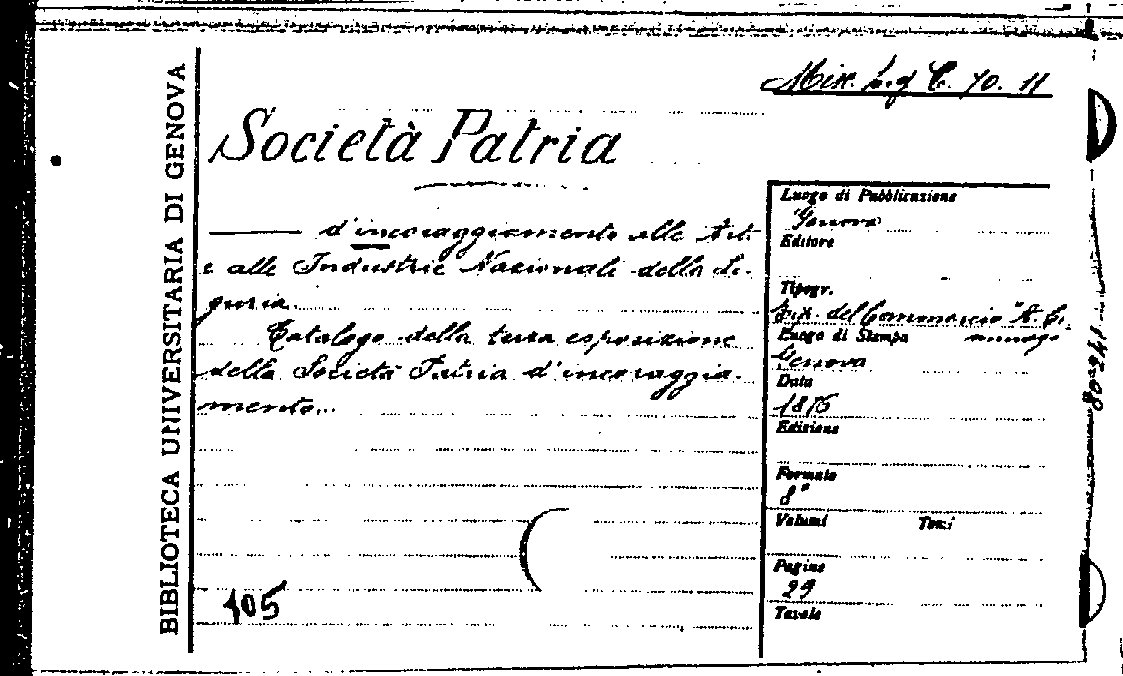 Misc. Lig C. 10. 11
BIBLIOTECA UNIVERSITARIA DI GENOVA
Società Patria
d'incoraggiamento alle Arti
e alle Industrie Nazionali della Li-
guria.
Catalogo della terza esposizione
della Società Patria d'incoraggia-
mento...
105
Luogo di Pubblicazione
Genova
Editore
Tipogr.
Tip. del Commercio "A. Ci.
Luogo di Stampa
Genova
Data
1876
Edizione
Formato
8°
Volumi Tomi
Pagine
29
Tavole